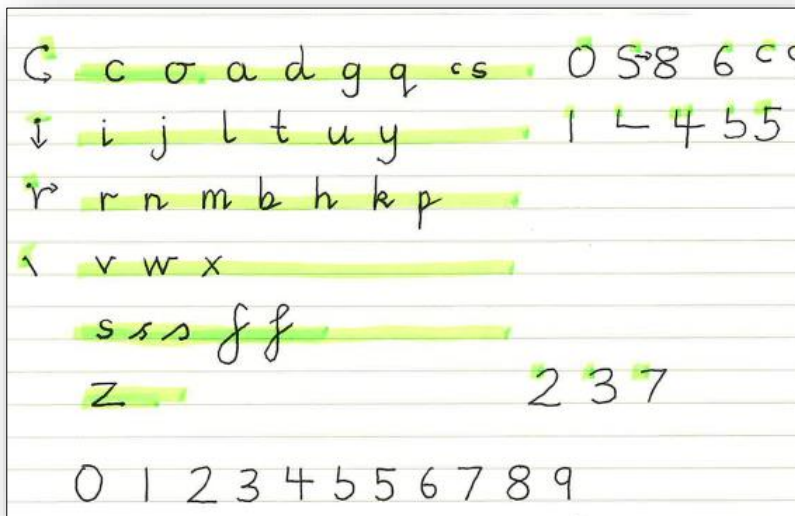 c o a d g q cs 0 S→8 6 c c
i j l t u y 1 L 4 5 5
r n m b h k p
v w x
s s s f f
z 2 3 7
0 1 2 3 4 5 5 6 7 8 9